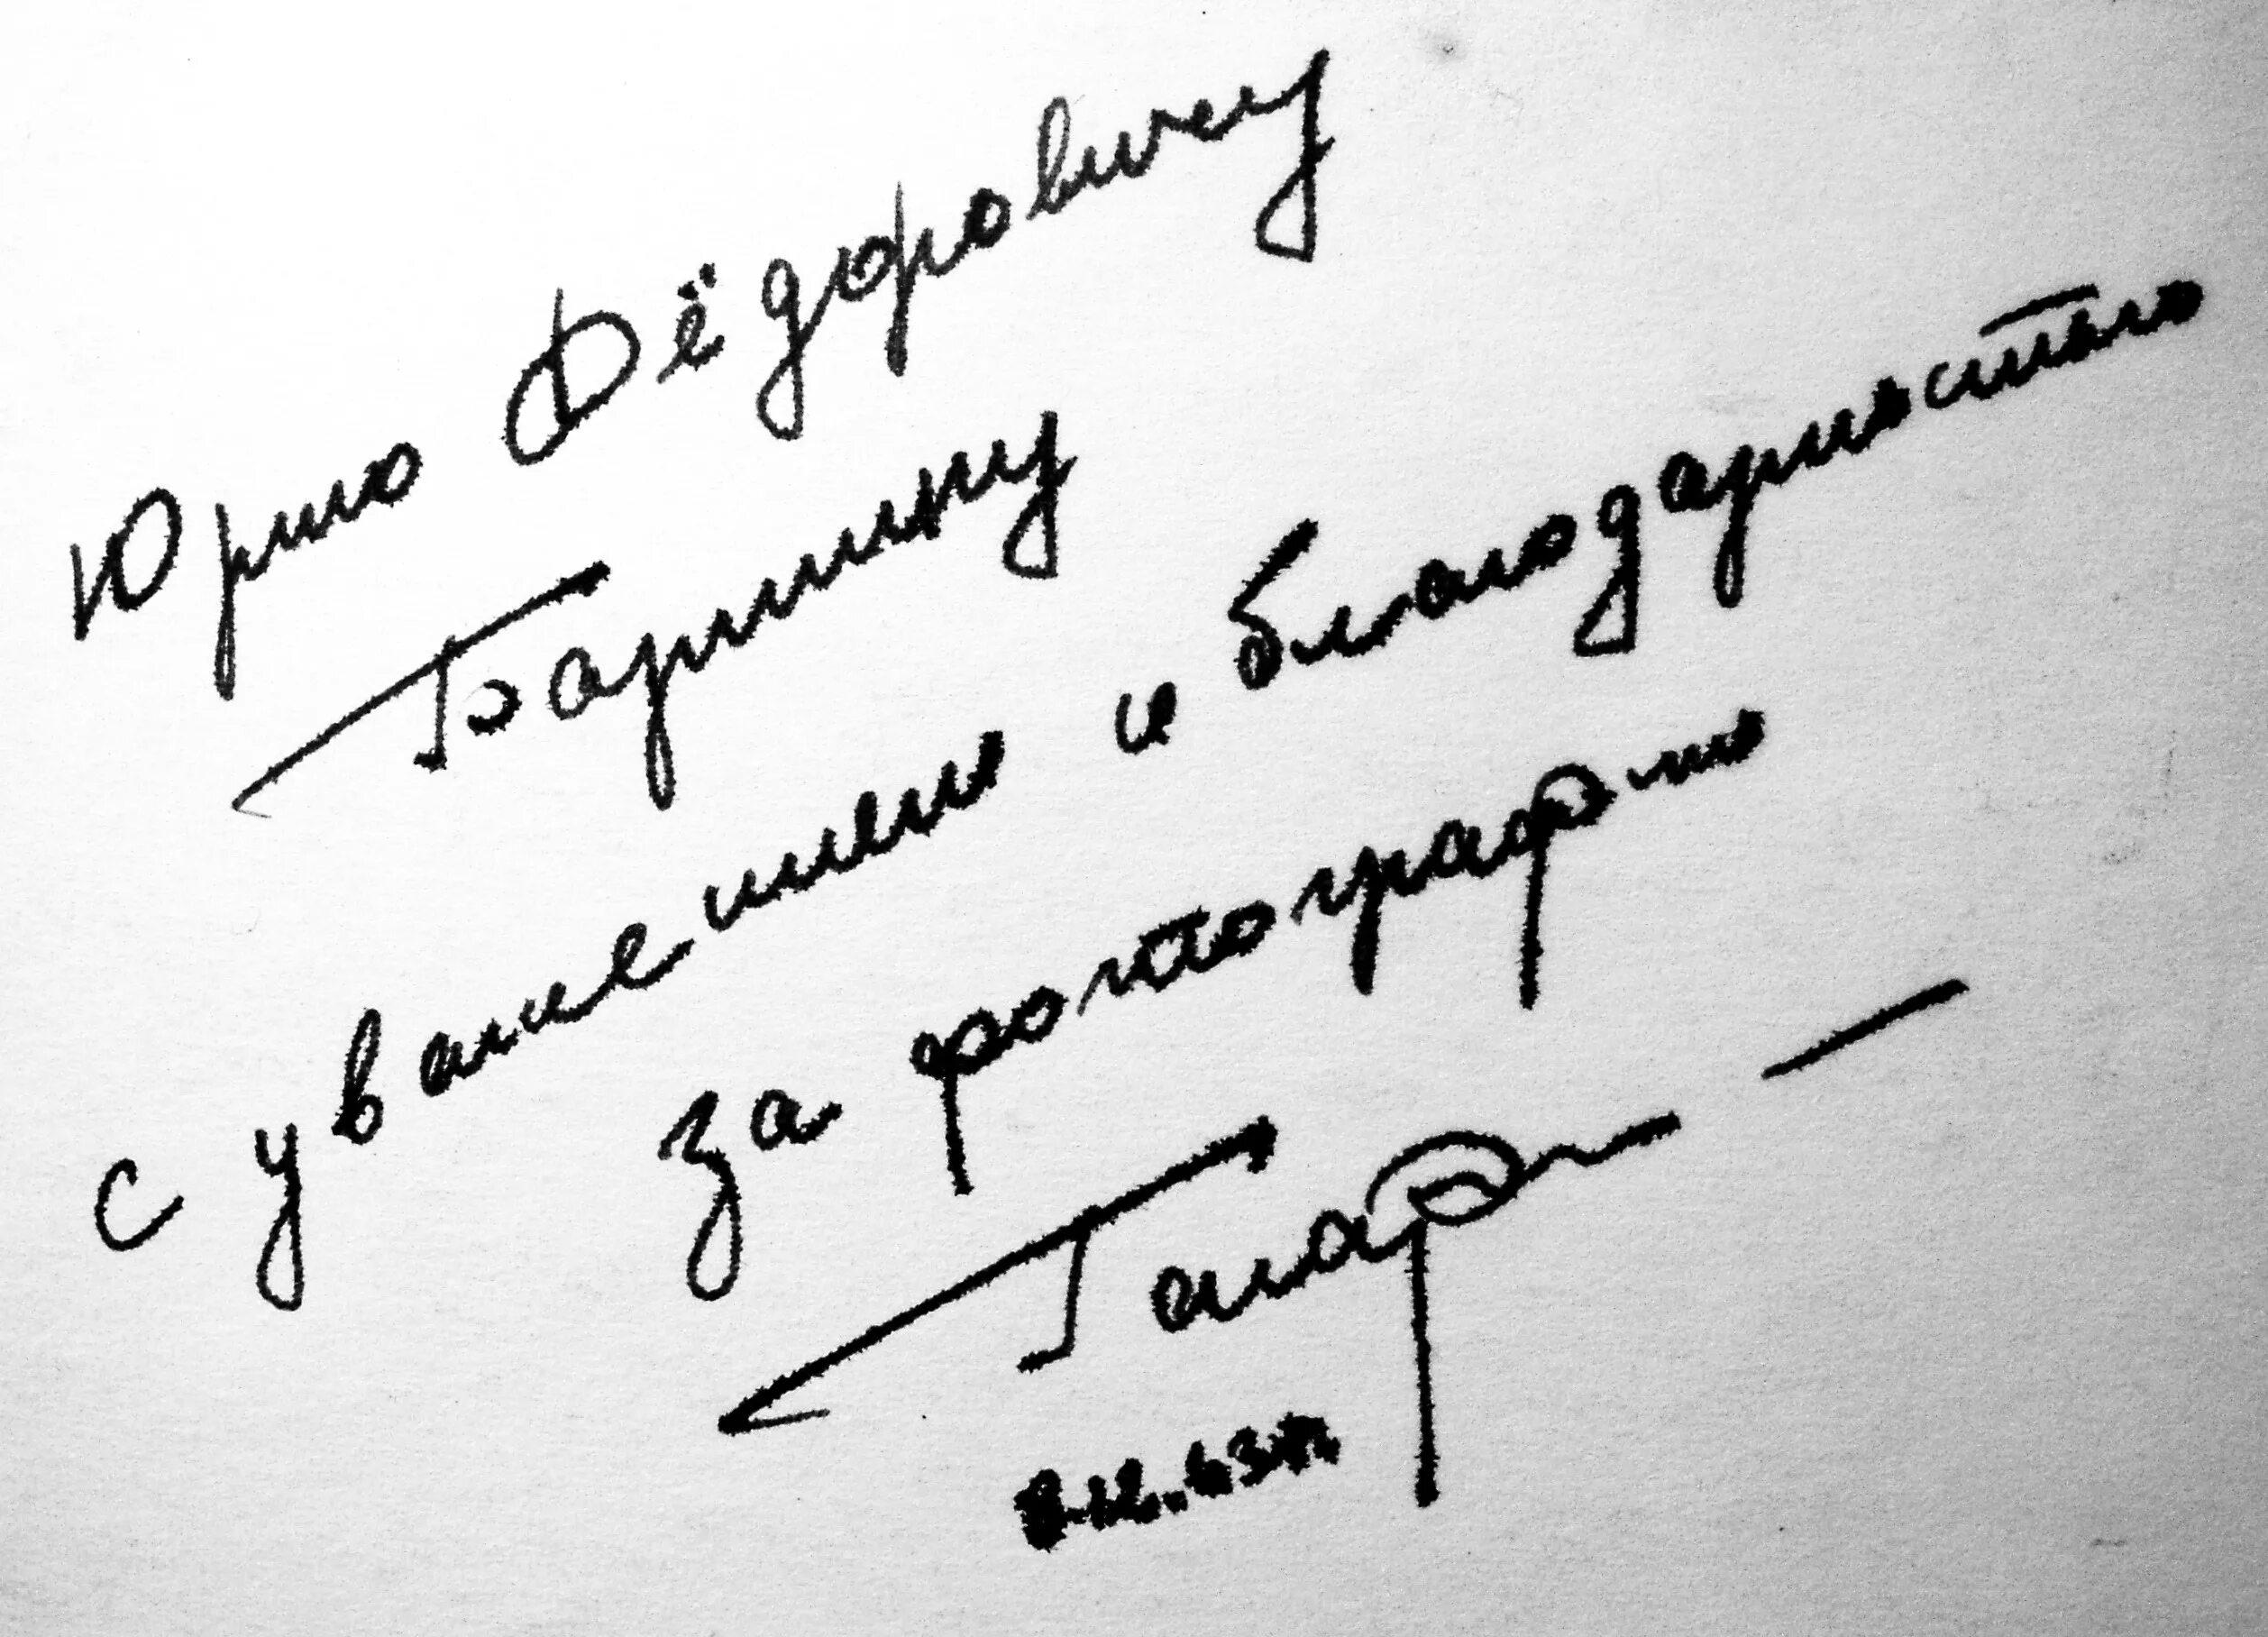 Юрию Фёдоровичу
Баринову
с уважением и благодарностью
за фотографию
Гагар
8.12.63г